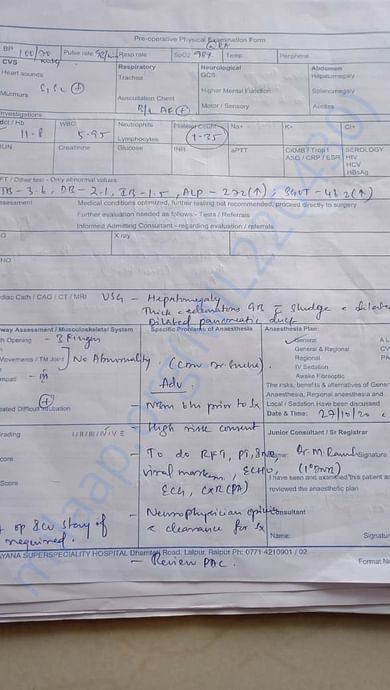 Pre-operative Physical Examination Form
BP 100/70 Pulse rate 92/min Resp rate SpO2 98% Temp. Peripheral
CVS Respiratory Neurological Abdomen
Heart sounds Trachea GCS Hepatomegaly
S1S2 (+) Higher Mental Function Splenomegaly
Murmurs Auscultation Chest Motor / Sensory Ascites
B/L AE (+)
Investigations
Hb WBC Neutrophils Platelet Count Na+ K+ Cl-
11.8 5.95 Lymphocytes 1.35
Creatinine Glucose INR aPTT CKMB / Trop I SEROLOGY
ASO / CRP / ESR HIV
HCV
HBsAg
FT / Other test - Only abnormal values
TB-3.6, DB-2.1, IB-1.5, ALP-272(↑), SGOT-48.2(↑)
Medical conditions optimized, further testing not recommended, proceed directly to surgery
Further evaluation needed as follows - Tests / Referrals
Informed Admitting Consultant - regarding evaluation / referrals
X ray
Cath / CAG / CT / MRI USG - Hepatomegaly
Thick GB sludge
Dilated pancreatic duct
Assessment / Musculoskeletal System Specific Problems of Anaesthesia Anaesthesia Plan:
Opening - 3 Finger General
Movements / TM Joint No Abnormality General & Regional
Regional
IV Sedation
Awake Fibreoptic
Adv.
The risks, benefits & alternatives of General
Anaesthesia, Regional anaesthesia and
Local / Sedation have been discussed
NBM 6 hr prior to Sx Date & Time: 27/10/20
Difficult Intubation
Grading I / II / III / IV V E - High risk consent Junior Consultant / Sr Registrar
Score - To do RFT, PT, INR, Signature
viral markers, ECHO,
Score ECG, CXR (PA) I have seen and examined this patient and
reviewed the anaesthetic plan
- Neurophysician opinion Consultant
op ICU stay if & clearance for Sx
required. Name: Signature
SUPERSPECIALITY HOSPITAL Dhamtari Road, Lalpur, Raipur Ph: 0771 4210901 / 02 Format No
- Review PAC.